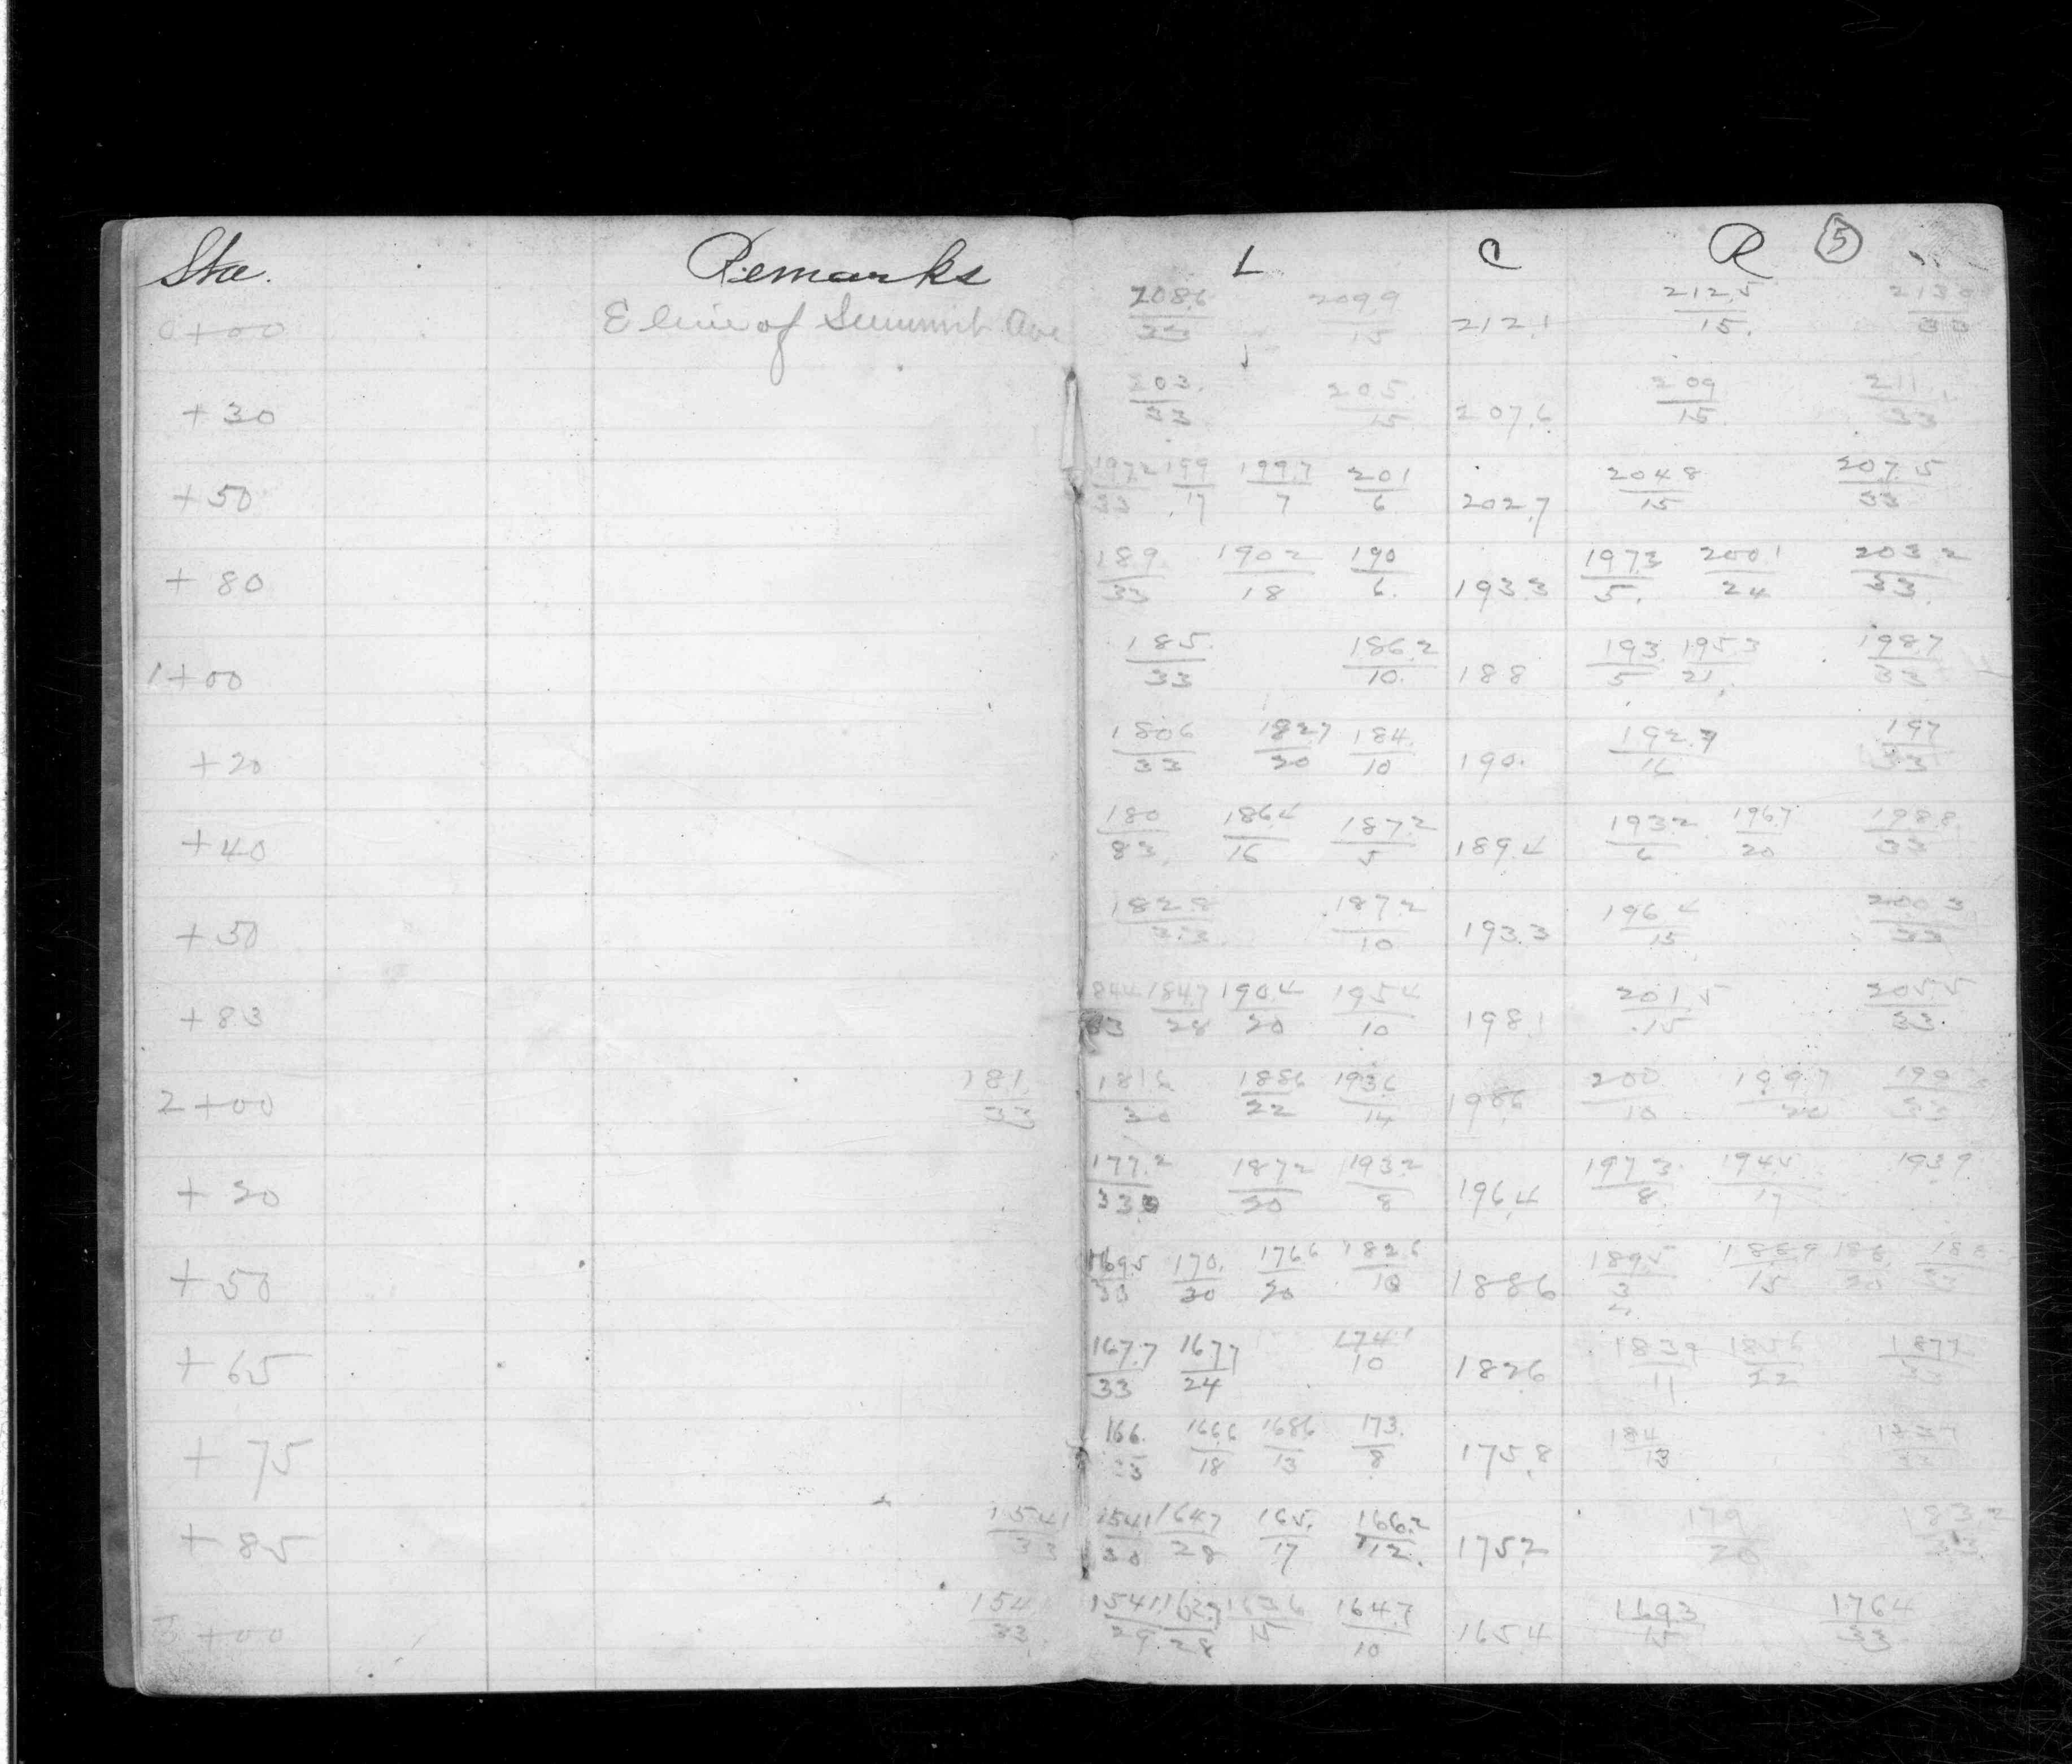 Sta. Remarks L C R 5
0+00 E line of Summit Ave 208.6/33 209.9/15 212.1 212.5/15. 213.0/33
+30 203./33 205./15 207.6 209/15. 211./33
+50 197.2/33 199/17 199.7/7 201/6 202.7 204.8/15 207.5/33
+80 189/33 190.2/18 190/6. 193.3 197.3/5. 200.1/24 203.2/33.
1+00 185./33 186.2/10. 188 193./5 195.3/21. 198.7/33
+20 180.6/33 182.7/20 184./10 190. 192.7/16 197/33
+40 180/33 186.4/16 187.2/5 189.4 193.2/6 196.7/20 198.8/33
+50 182.8/33 187.2/10 193.3 196.4/15 200.3/33
+83 184.7/28 190.4/20 195.4/10 198.1 201.5/15 205.5/33.
2+00 181./33 181.6/30 188.6/22 193.6/14 198.6 200/10 199.7/20
+20 177.2/33 187.2/20 193.2/8 196.4 197.3/8. 194.5/17 193.9
+50 169.5/33 170./30 176.6/20 182.6/10 188.6 189.5/3 188.9/15 188/33
+65 167.7/33 167.7/24 174.1/10 182.6 183.9/11 185.6/22 187.7
+75 166./33 166.6/18 168.6/13 173./8 175.8 184/13
+85 154.1/33 154.1/30 164.7/28 165./17 166.2/12. 175.2 179/20 183.2/33
3+00 154/33. 154.1/29. 163.6/15 164.7/10 165.4 169.3/15 176.4/33